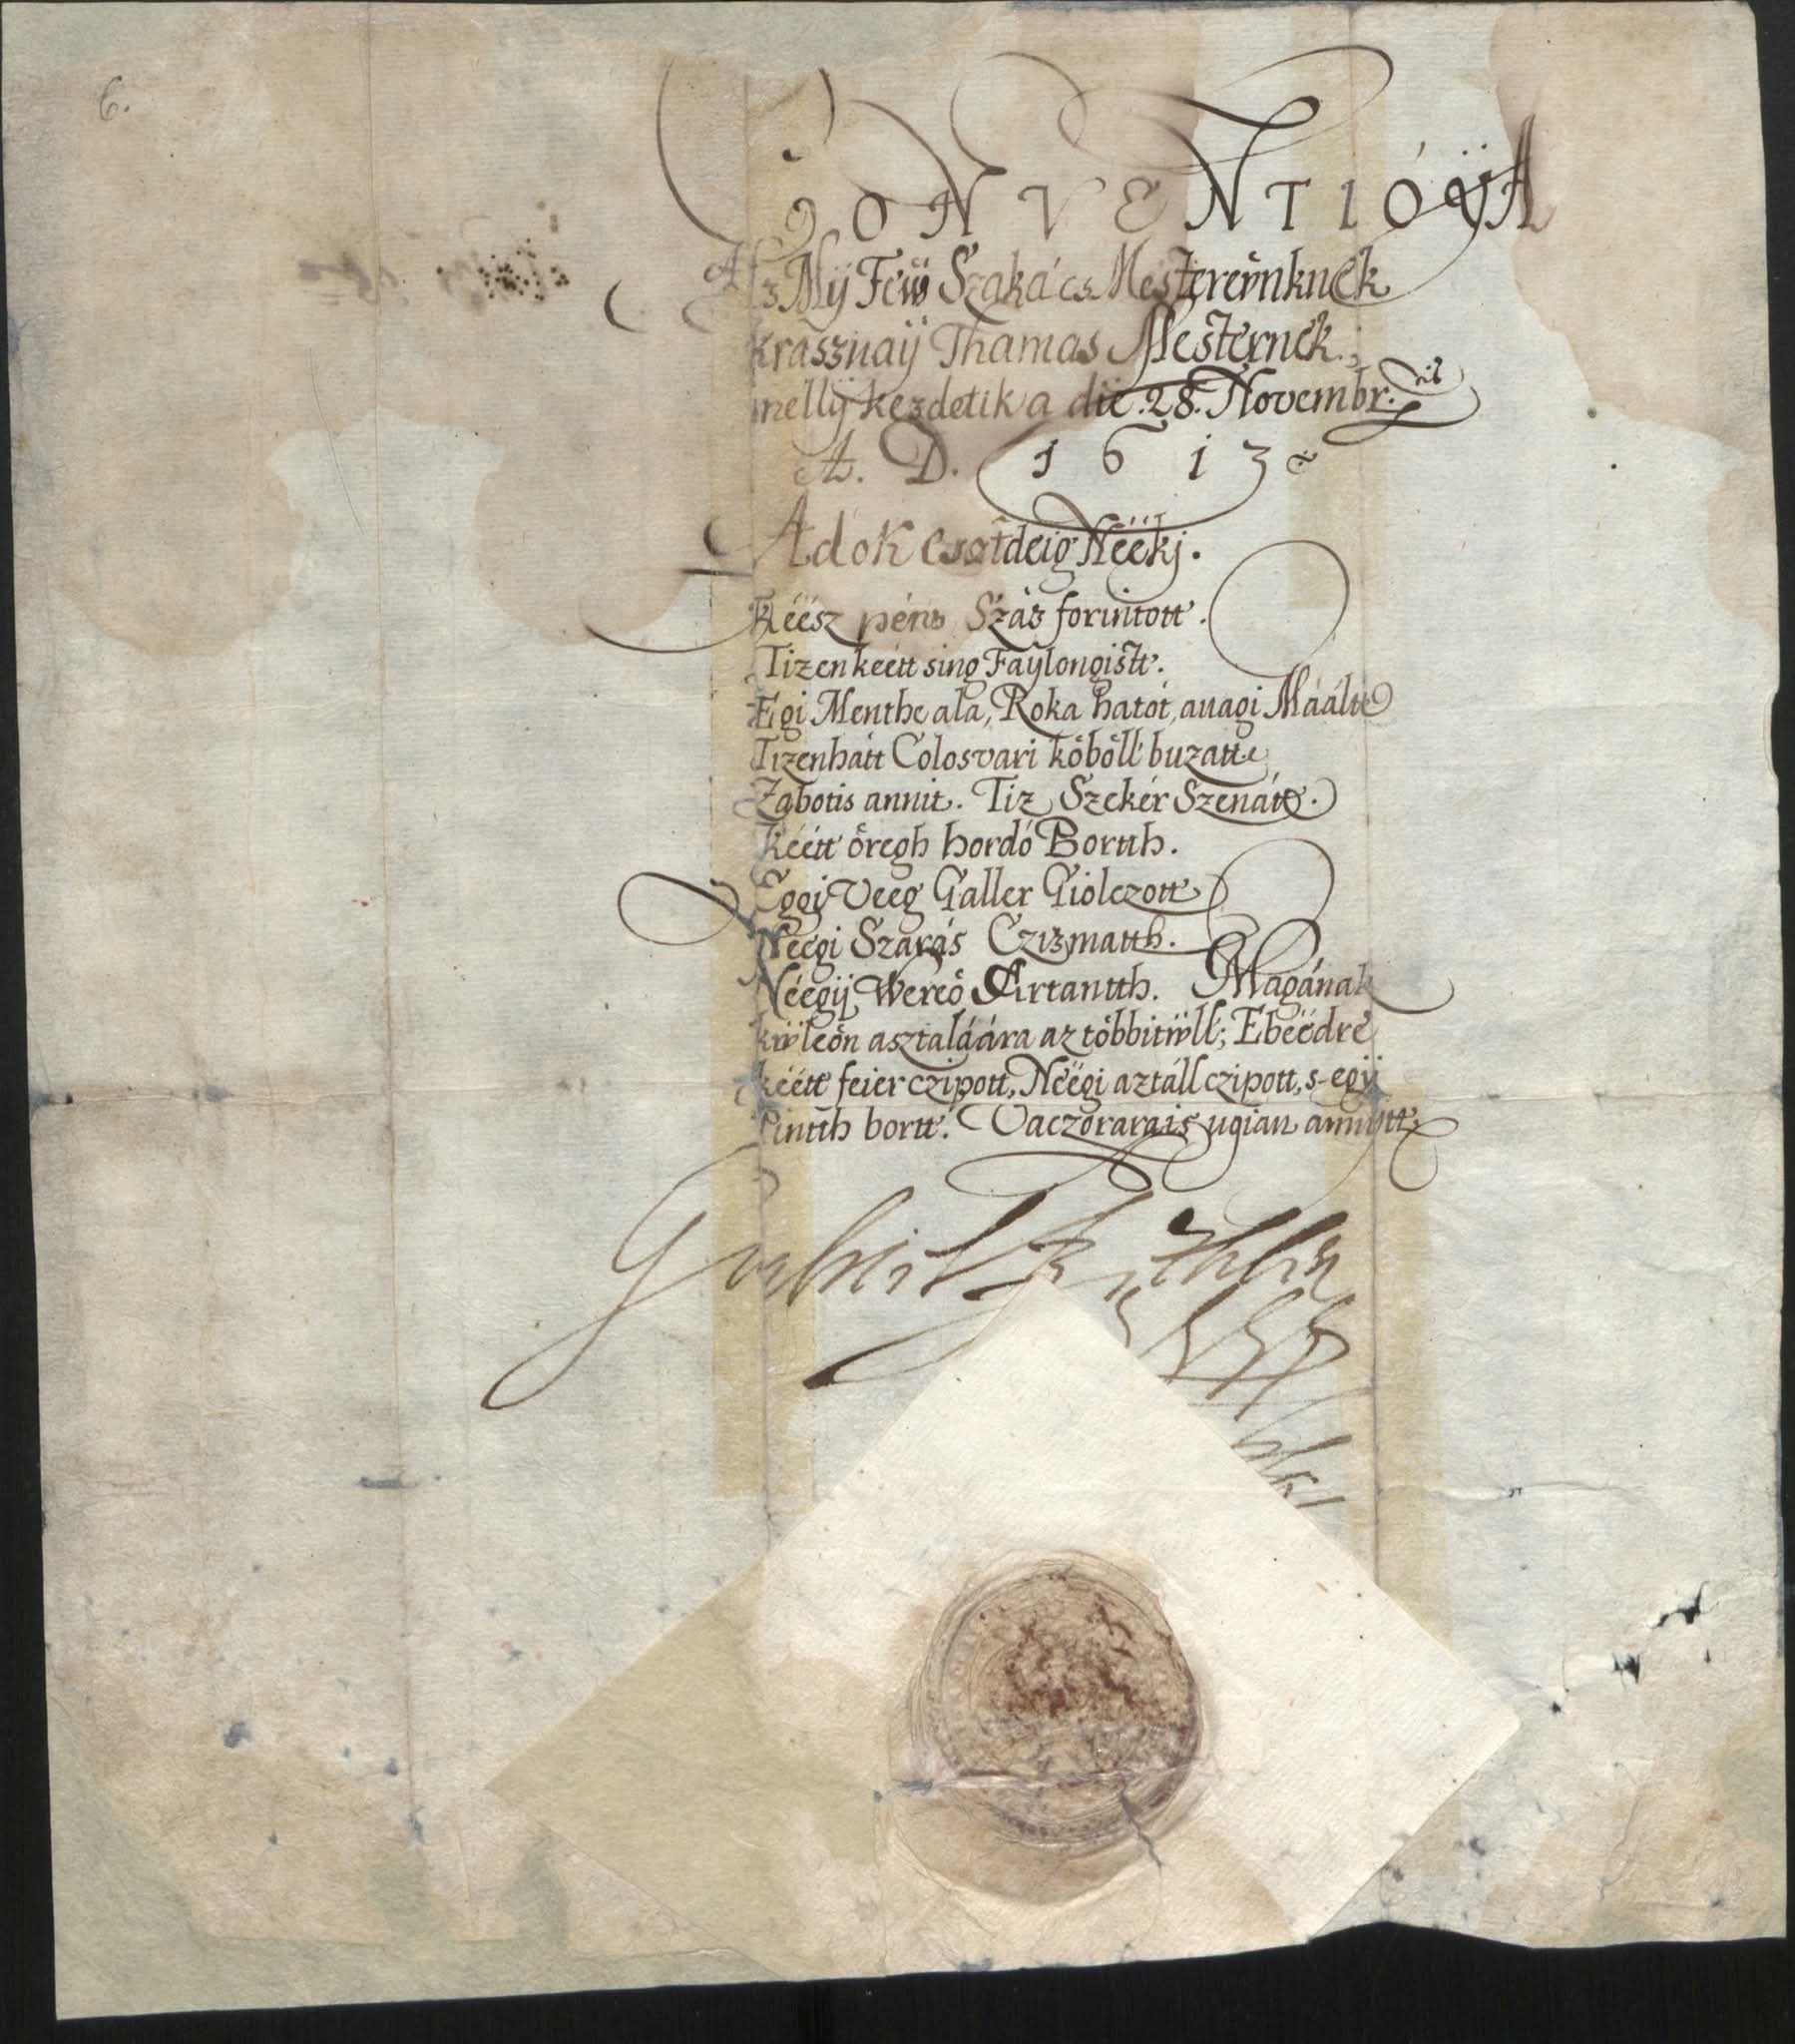 6.
CONVENTIÓŸA
Az Mÿ Feẅ Szakács Mestereẅnknek
Krasznaÿ Thamas Mesternek.,
mellÿ kezdetik a die .28. Novembr.ris
A. D. 1613
Adok esztdeig Néékj.
Kéész pénz Száz forintott.
Tizenkéétt sing Faÿlongistt.
Egi Menthe ala, Roka hatót, auagi Máált
Tizenhátt Colosvari köböll buzatt
Zabotis annit. Tiz Szekér Szenát.
Kéétt öregh hordó Bortth.
Eggÿ Veeg Galler Giolczott
Neegi Szarás Czizmatth.
Néegÿ Wereö Artantth. Magának
kẅleön asztaláára az többitẅll; Ebéédre
kéétt feier czipott, Néégi aztáll czipott, s-egÿ
Pintth bortt. Vaczorarais ugian annÿtt
Gabriel Bethlen